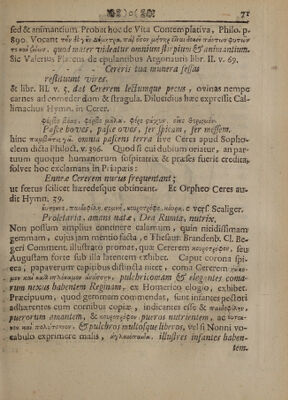 71
sed & animantium. Probat hoc de Vita Contemplativa, Philo. p.
890. Vocant τὴν δὲ γῆν Δήμητραν, παρ' ὅσον μήτηρ εἶναι δοκεῖ πάντων φυτῶν
τε καὶ ζώων, quod mater videatur omnium stirpium & animantium.
Sic Valerius Flaccus de epulantibus Argonauts libr. II. v. 69.
Cereris tua munera fessas
restituunt vires.
& libr. III. v. 5. dat Cererem lectumque pecus, ovinas nempe
carnes ad comedendum & stragula. Dilucidius hæc expressit Cal-
limachus Hymn. in Cerer.
φέρβε βόας, φέρε μᾶλα, φέρε στάχυν, οἶσε θερισμόν.
Pasce boves, pasce oves, fer spicam, fer messem.
hinc omnia pascens terra sive Ceres apud Sopho-
clem dicta Philoct. v. 396. Quod si cui dubium oriatur, an par-
tuum quoque humanorum sospitatrix & præses fuerit credita,
solvet hoc exclamans in Priapæis:
Ennææ Cererem nurus frequentant;
ut fœtus scilicet hæredesque obtineant. Et Orpheo Ceres au-
dit Hymn. 39.
εὔτεκνε, παιδοφίλη, σεμνὴ, κουροτρόφε, κούρη. e vers. Scaliger.
Proletaria, amans natæ, Dea Rumia, nutrix.
Non possum amplius continere calamum, quin nitidissimam
gemmam, cujus jam mentio facta, e Thesaur. Brandenb. Cl. Be-
geri Comment. illustrato promat, qua Cererem κουροτρόφον, seu
Augustam forte sub illa latentem exhibet. Caput corona spi-
cea, papaverum capitibus distincta nitet, coma Cererem
pulchricomam & elegantes coma-
rum nexus habentem Reginam, ex Homerico elogio, exhibet.
Præcipuum, quod gemmam commendat, sunt infantes pectori
adhærentes cum cornibus copiæ, indicantes esse & παιδοφίλην,
puerorum amantem, & κουροτρόφον pueros nutrientem, ac
καὶ & pulchros multosque liberos, vel si Nonni vo-
cabulo exprimere malis, ἀγλαόπαιδα, illustres infantes haben-
tem.